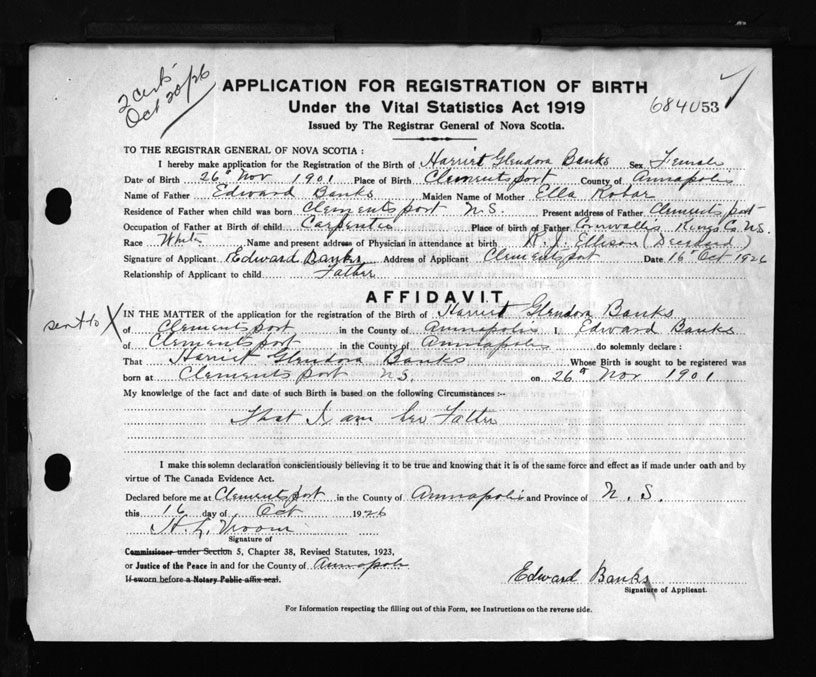 2 certs
Oct 20/26
APPLICATION FOR REGISTRATION OF BIRTH
Under the Vital Statistics Act 1919
684053
Issued by The Registrar General of Nova Scotia.
TO THE REGISTRAR GENERAL OF NOVA SCOTIA :
I hereby make application for the Registration of the Birth of Harriet Glendora Banks Sex Female
Date of Birth 26th Nov 1901 Place of Birth Clementsport County of Annapolis
Name of Father Edward Banks Maiden Name of Mother Ella Robar
Residence of Father when child was born Clementsport N.S. Present address of Father Clementsport
Occupation of Father at Birth of child Carpenter Place of birth of Father Cornwallis Kings Co. N.S.
Race White Name and present address of Physician in attendance at birth R. J. Ellison (Deceased)
Signature of Applicant Edward Banks Address of Applicant Clementsport Date 16th Oct 1926
Relationship of Applicant to child Father
AFFIDAVIT
sent to X
IN THE MATTER of the application for the registration of the Birth of Harriet Glendora Banks
of Clementsport in the County of Annapolis I, Edward Banks
of Clementsport in the County of Annapolis do solemnly declare :
That Harriet Glendora Banks Whose Birth is sought to be registered was
born at Clementsport N.S. on 26th Nov 1901
My knowledge of the fact and date of such Birth is based on the following Circumstances :--
That I am her Father
I make this solemn declaration conscientiously believing it to be true and knowing that it is of the same force and effect as if made under oath and by
virtue of The Canada Evidence Act.
Declared before me at Clementsport in the County of Annapolis and Province of N. S.
this 16 day of Oct 1926
H. L. Vroom
Signature of
Commissioner under Section 5, Chapter 38, Revised Statutes, 1923,
or Justice of the Peace in and for the County of Annapolis
If sworn before a Notary Public affix seal.
Edward Banks
Signature of Applicant.
For Information respecting the filling out of this Form, see Instructions on the reverse side.